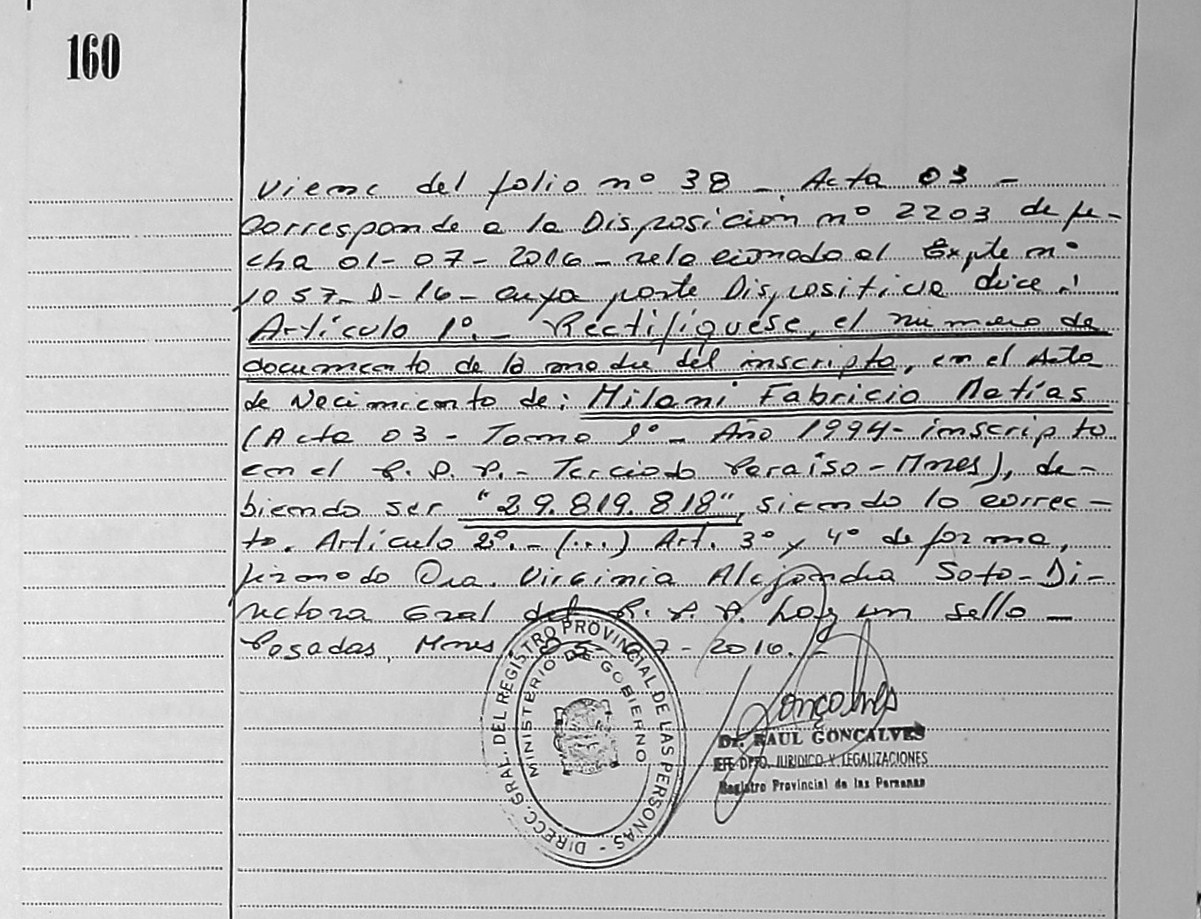 160
Viene del folio nº 38 - Acta 03 -
Corresponde a la Disposición nº 2203 de fe-
cha 01-07-2016 - relacionado al Expte nº
1057-D-16 - cuya parte Dispositiva dice:
Artículo 1º.- Rectifíquese, el número de
documento de la madre del inscripto, en el Acta
de Nacimiento de: Milani Fabricio Matías
(Acta 03 - Tomo 1º - Año 1994 - inscripto
en el R. P. P. - Terciado Paraíso - Mnes), de-
biendo ser "29.819.818", siendo lo correc-
to. Artículo 2º.- (...) Art. 3º y 4º de forma,
firmado Dra. Virginia Alejandra Soto - Di-
rectora Gral del R. P. P. hay un sello -
Posadas, Mnes, 05-07-2016.-
DIRECC. GRAL. DEL REGISTRO PROVINCIAL DE LAS PERSONAS -
MINISTERIO DE GOBIERNO
Gonçalves
Dr. RAUL GONCALVES
JEFE DPTO. JURIDICO Y LEGALIZACIONES
Registro Provincial de las Personas